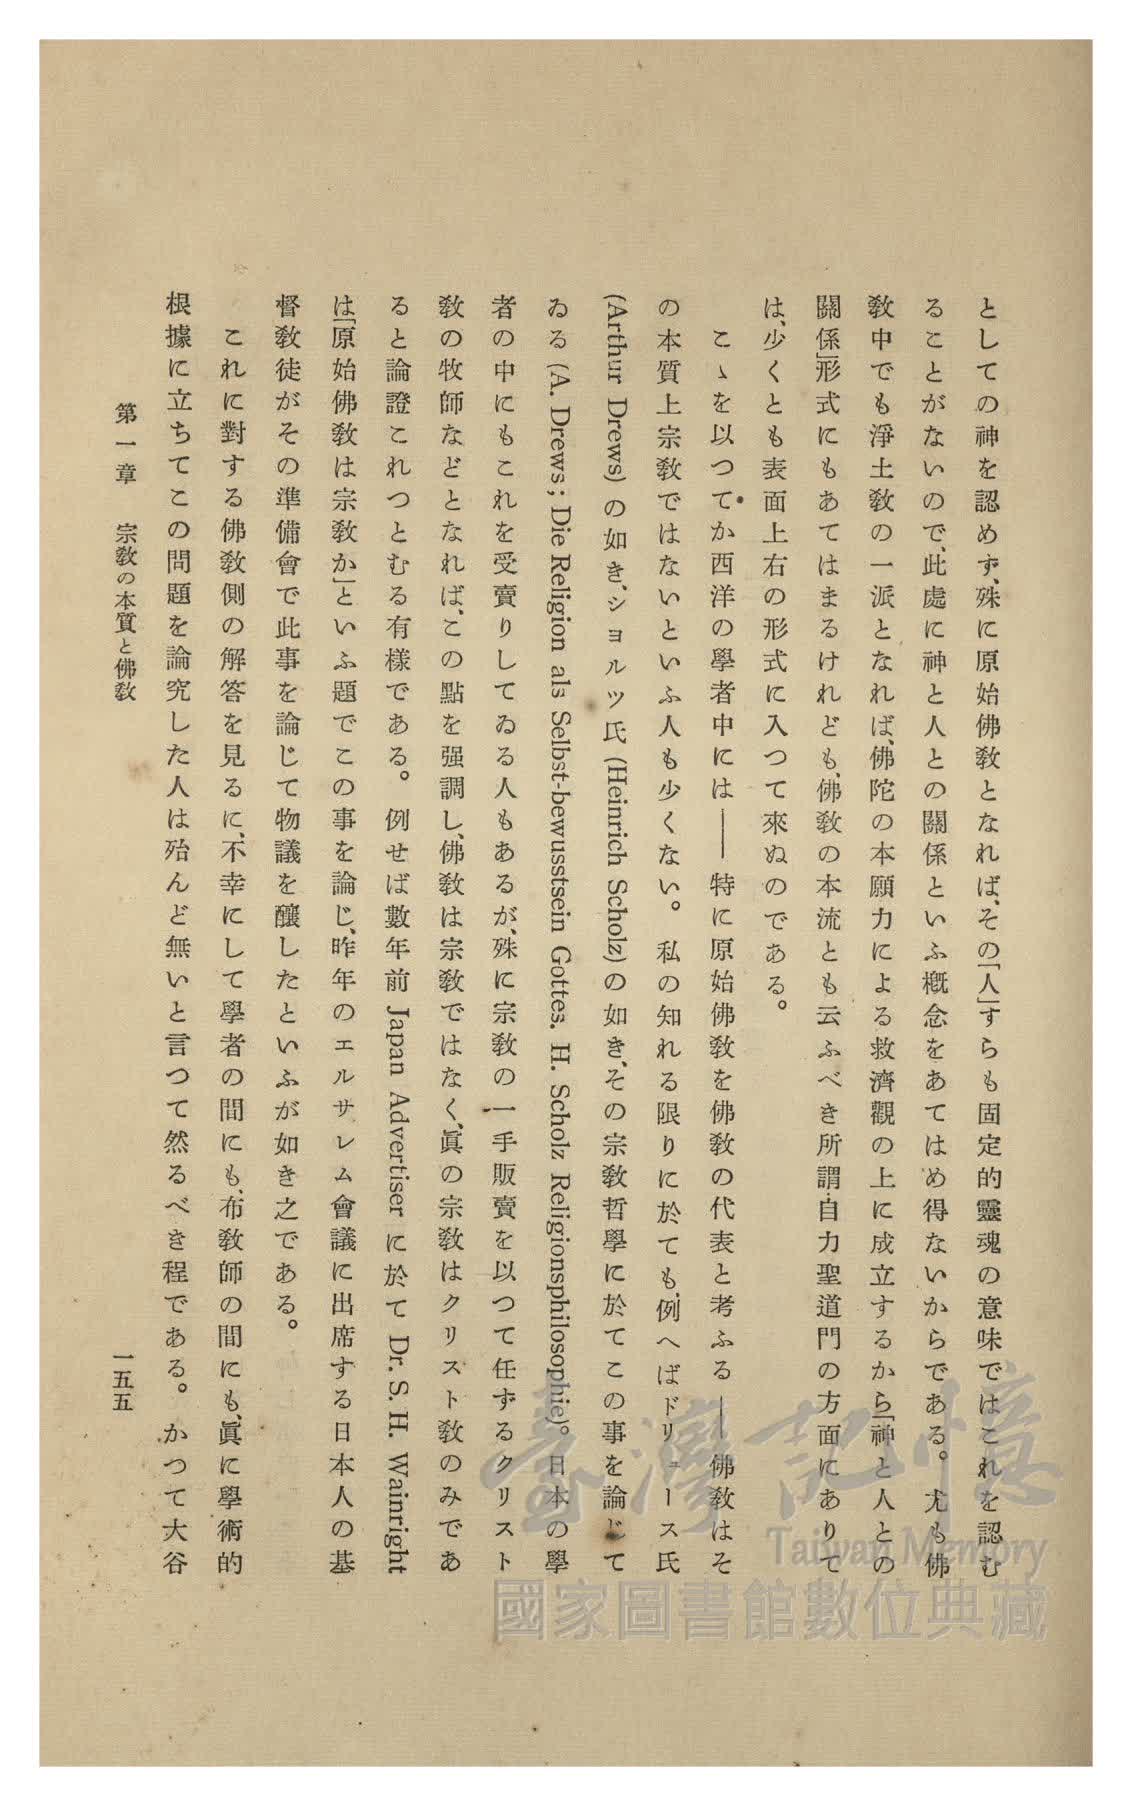 としての神を認めず、殊に原始佛敎となれば、その「人」すらも固定的靈魂の意味ではこれを認む
ることがないので、此處に神と人との關係といふ槪念をあてはめ得ないからである。尤も佛
敎中でも淨土敎の一派となれば、佛陀の本願力による救濟觀の上に成立するから「神と人との
關係」形式にもあてはまるけれども、佛敎の本流とも云ふべき所謂自力聖道門の方面にありて
は、少くとも表面上右の形式に入つて來ぬのである。
こゝを以つてか西洋の學者中には――特に原始佛敎を佛敎の代表と考ふる――佛敎はそ
の本質上宗敎ではないといふ人も少くない。私の知れる限りに於ても、例へばドリュース氏
(Arthur Drews)の如き、ショルツ氏(Heinrich Scholz)の如き、その宗敎哲學に於てこの事を論じて
ゐる(A. Drews; Die Religion als Selbst-bewusstsein Gottes. H. Scholz Religionsphilosophie)。日本の學
者の中にもこれを受賣りしてゐる人もあるが、殊に宗敎の一手販賣を以つて任ずるクリスト
敎の牧師などとなれば、この點を强調し、佛敎は宗敎ではなく、眞の宗敎はクリスト敎のみであ
ると論證これつとむる有樣である。例せば數年前 Japan Advertiser に於て Dr. S. H. Wainright
は「原始佛敎は宗敎か」といふ題でこの事を論じ、昨年のエルサレム會議に出席する日本人の基
督敎徒がその準備會で此事を論じて物議を釀したといふが如き之である。
これに對する佛敎側の解答を見るに、不幸にして學者の間にも、布敎師の間にも、眞に學術的
根據に立ちてこの問題を論究した人は殆んど無いと言つて然るべき程である。かつて大谷
第一章 宗敎の本質と佛敎 一五五
臺灣記憶
Taiwan Memory
國家圖書館數位典藏